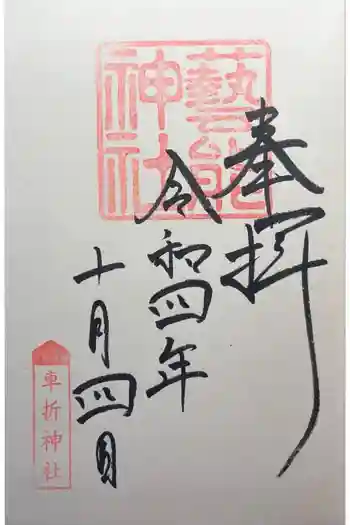 奉拝
藝能神社
令和四年
十月四日
車折神社